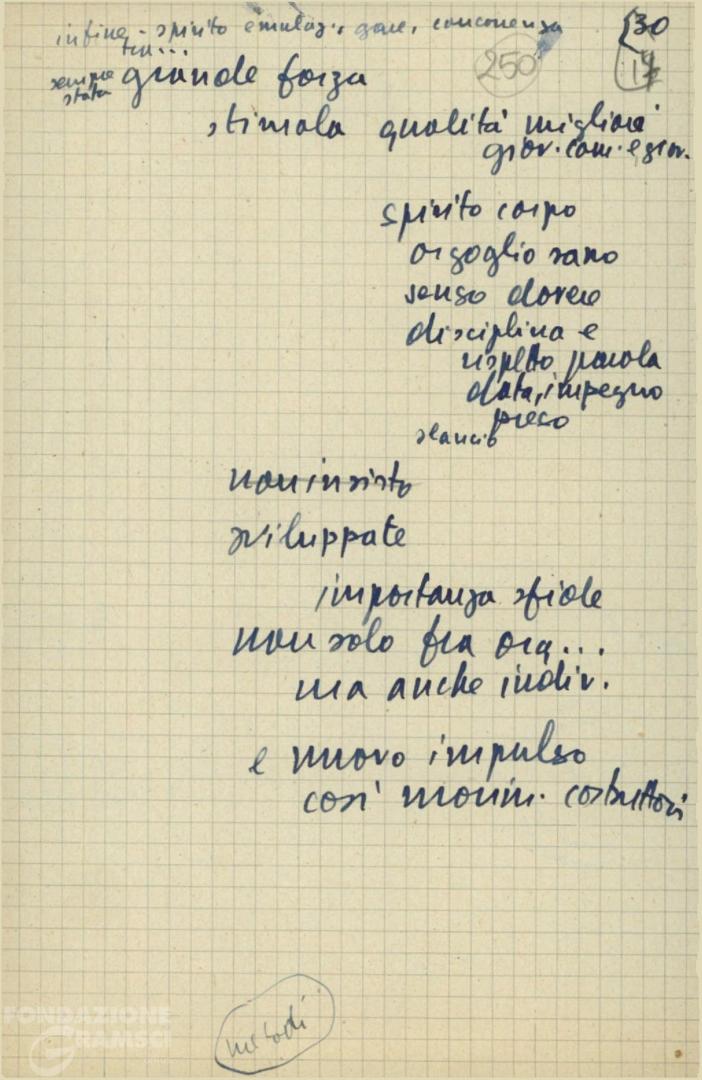 infine - spirito emulaz., gare, concorrenza
tra...
30
17
250
sempre
stata
grande forza
stimola qualità migliori
giov. com. e giov.
spirito corpo
orgoglio sano
senso dovere
disciplina e
rispetto parola
data, impegno
preso
slancio
non insisto
sviluppate
importanza sfide
non solo fra org...
ma anche indiv.
e nuovo impulso
così movim. costruttori
metodi
FONDAZIONE
GRAMSCI